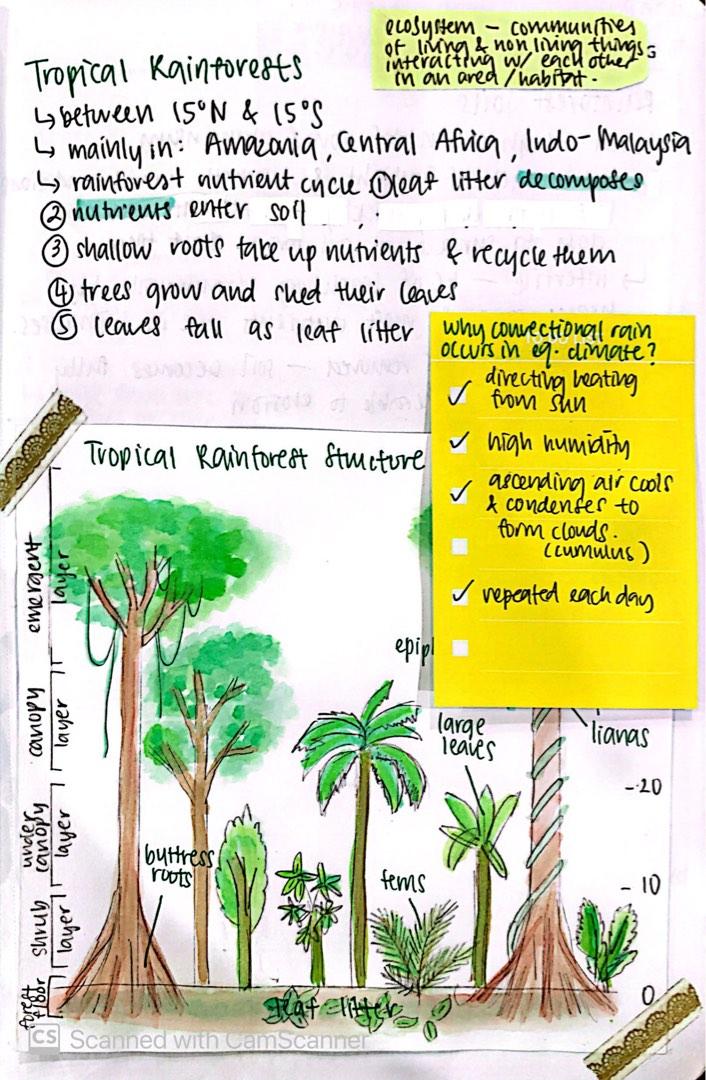 ecosystem – communities
of living & non living things
interacting w/ each other
in an area/habitat.
Tropical Rainforests
↳ between 15°N & 15°S
↳ mainly in: Amazonia, Central Africa, Indo-Malaysia
↳ rainforest nutrient cycle ① leaf litter decomposes
② nutrients enter soil
③ shallow roots take up nutrients & recycle them
④ trees grow and shed their leaves
⑤ leaves fall as leaf litter
why convectional rain
occurs in eq. climate?
✓ directing heating
from sun
✓ high humidity
✓ ascending air cools
& condenses to
form clouds.
(cumulus)
✓ repeated each day
Tropical Rainforest Structure
emergent
layer
canopy
layer
under
canopy
layer
shrub
layer
forest
floor
epip
large
leaves
lianas
buttress
roots
ferns
leaf litter
-20
- 10
0
CS Scanned with CamScanner